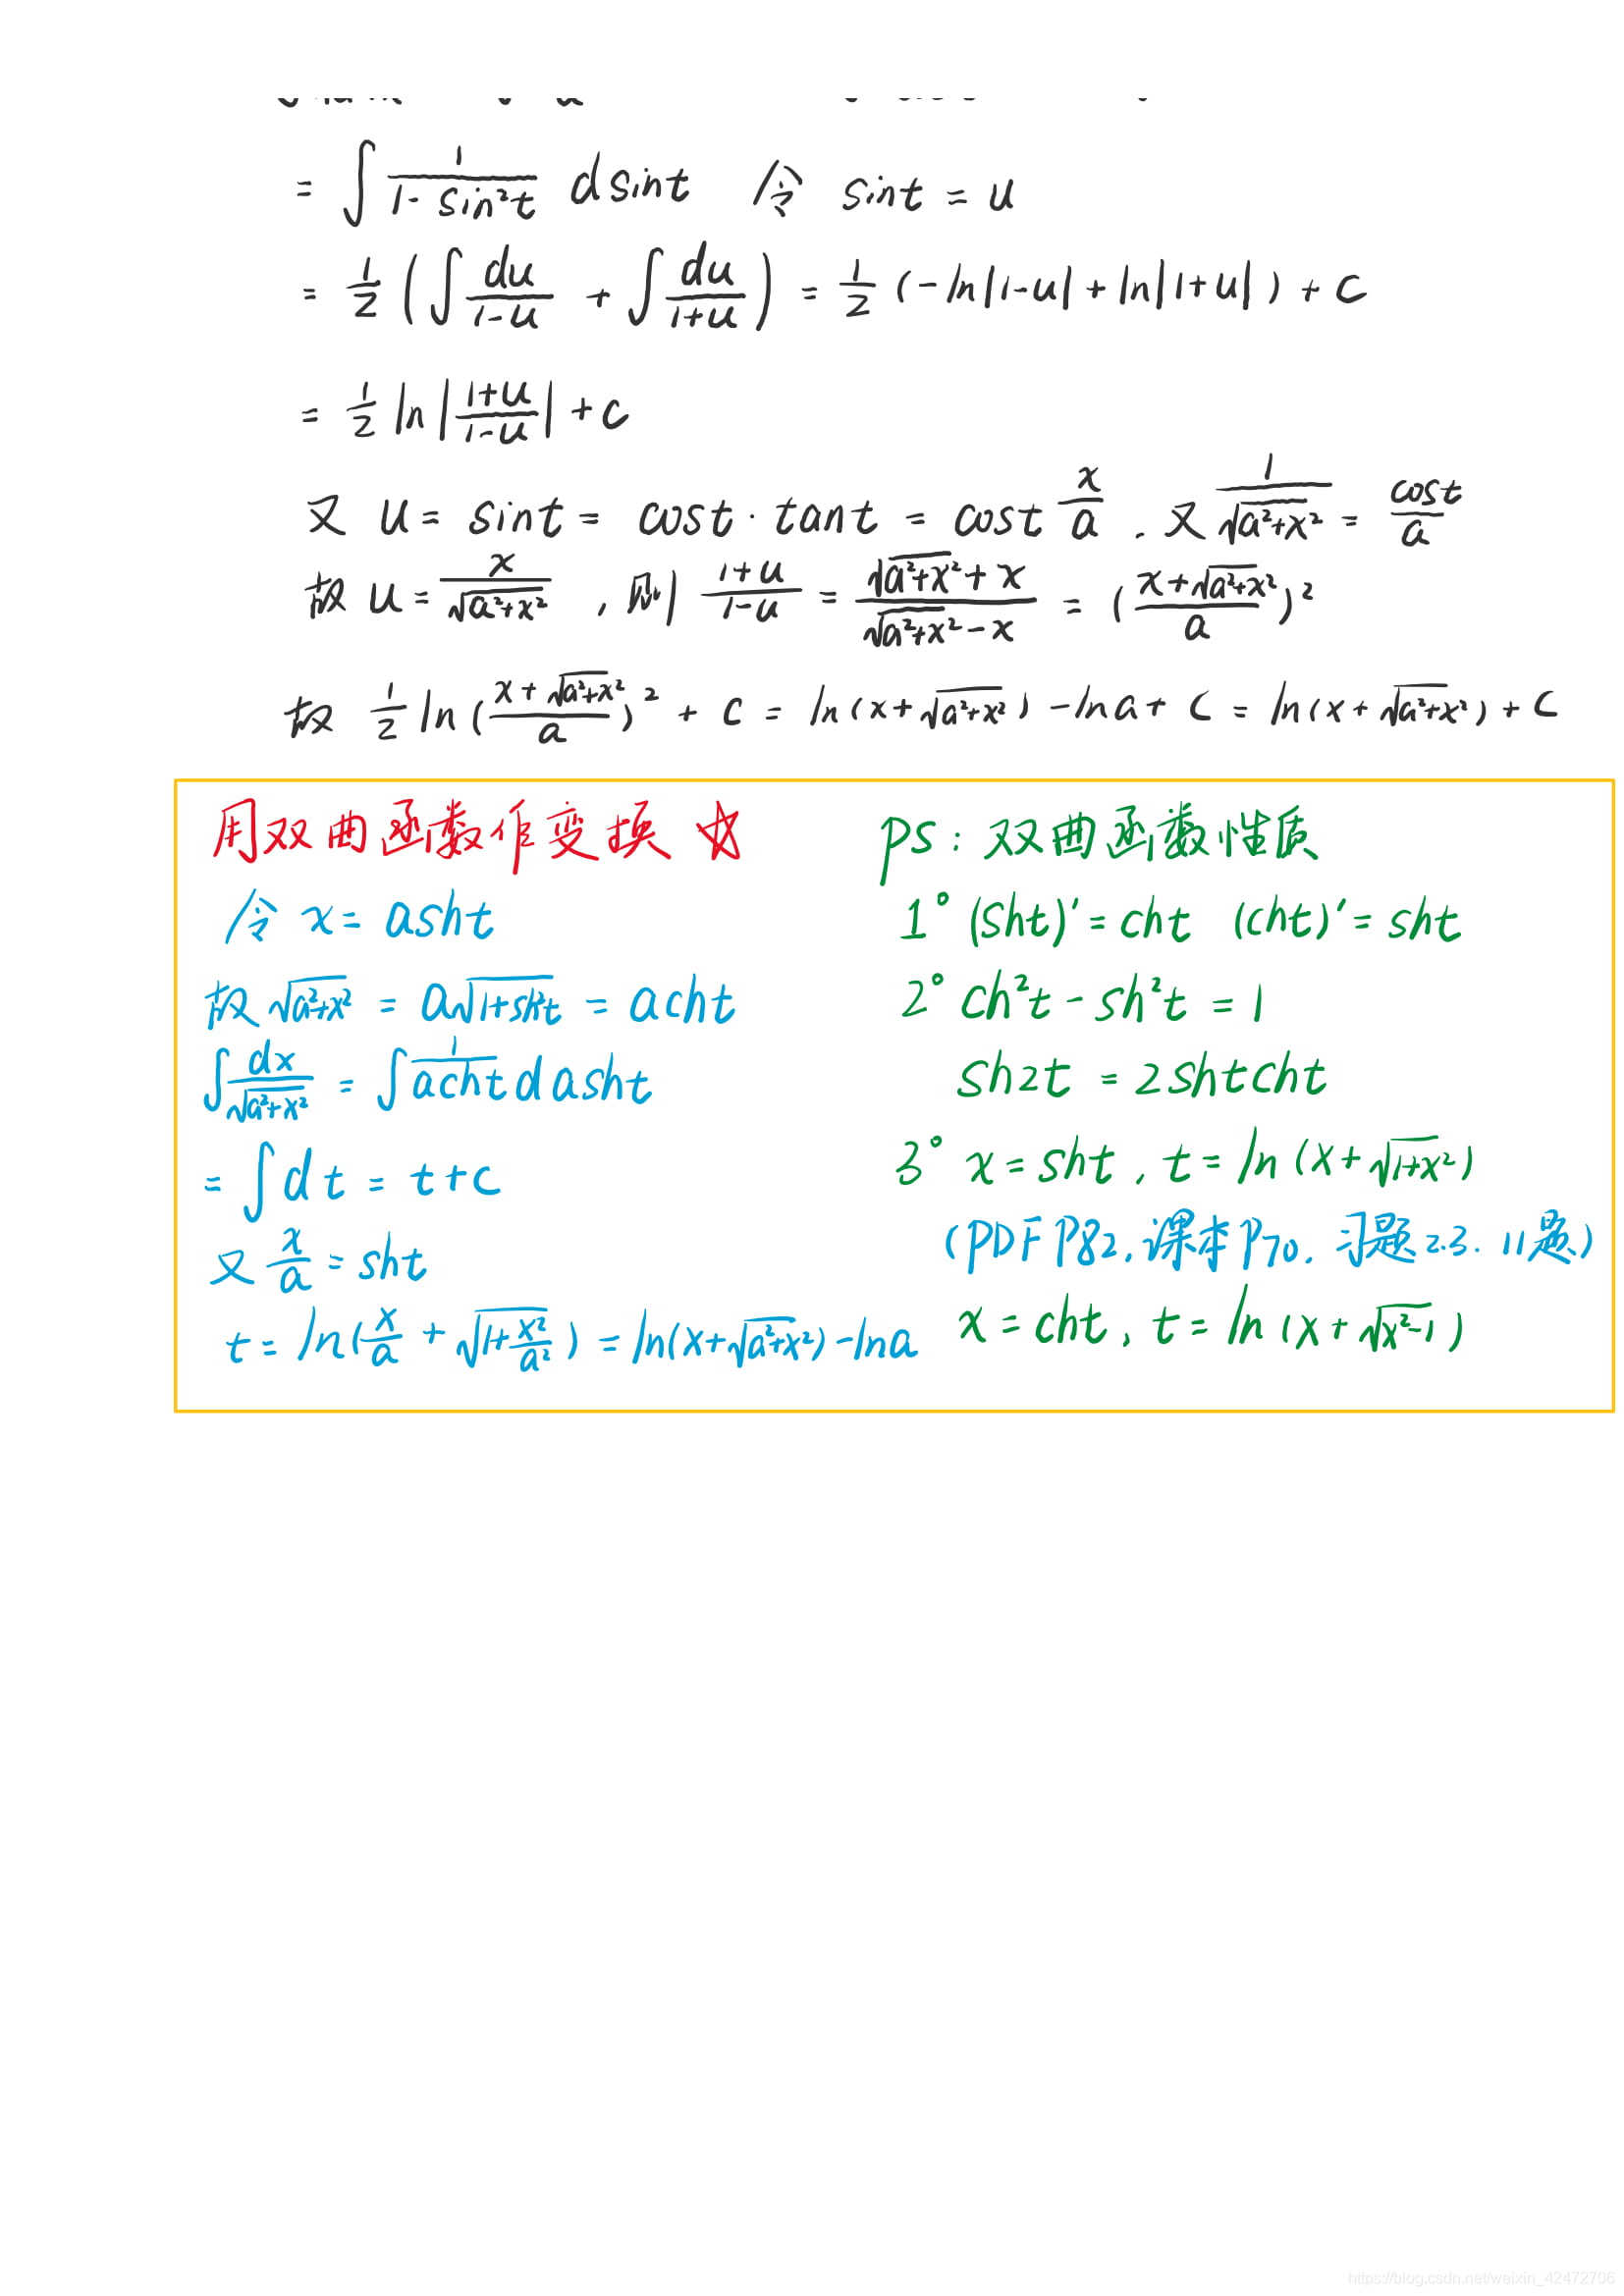 = ∫ 1/(1-sin²t) dsint 令 sint = u
= 1/2 ( ∫ du/(1-u) + ∫ du/(1+u) ) = 1/2 (-ln|1-u| + ln|1+u|) + C
= 1/2 ln|(1+u)/(1-u)| + C
又 u = sint = cost · tant = cost x/a , 又 1/√(a²+x²) = cost/a
故 u = x/√(a²+x²) , 则 (1+u)/(1-u) = (√(a²+x²) + x)/(√(a²+x²) - x) = ((x+√(a²+x²))/a)²
故 1/2 ln((x+√(a²+x²))/a)² + C = ln(x+√(a²+x²)) - lna + C = ln(x+√(a²+x²)) + C
用双曲函数作变换 ☆
令 x = asht
故 √(a²+x²) = a√(1+sh²t) = acht
∫ dx/√(a²+x²) = ∫ 1/acht dasht
= ∫ dt = t + C
又 x/a = sht
t = ln(x/a + √(1+x²/a²)) = ln(x+√(a²+x²)) - lna
PS: 双曲函数性质
1° (sht)' = cht (cht)' = sht
2° ch²t - sh²t = 1
sh2t = 2shtcht
3° x = sht, t = ln(x+√(1+x²))
(PDF P82, 课本P70, 习题2.3. 11题)
x = cht, t = ln(x+√(x²-1))
https://blog.csdn.net/weixin_42472706